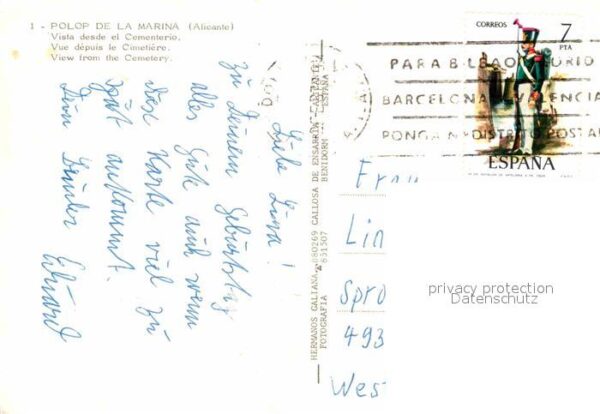 1 - POLOP DE LA MARINA (Alicante)
Vista desde el Cementerio.
Vue dépuis le Cimetière.
View from the Cemetery.
Liebe Lina!
Zu Deinem Geburtstag
alles Gute auch wenn
diese Karte viel zu
spät ankommt.
Dein Bruder Eduard
HERMANOS GALIANA 880269 CALLOSA DE ENSARRIA (ALICANTE)
FOTOGRAFIA 651507 BENIDORM ESPAÑA
CORREOS
7
PTA
PARA BILBAO MADRID
BARCELONA VALENCIA
PONGA Nº DISTRITO POSTAL
ESPAÑA
Frau
Lin
Spro
493
Wes
privacy protection
Datenschutz